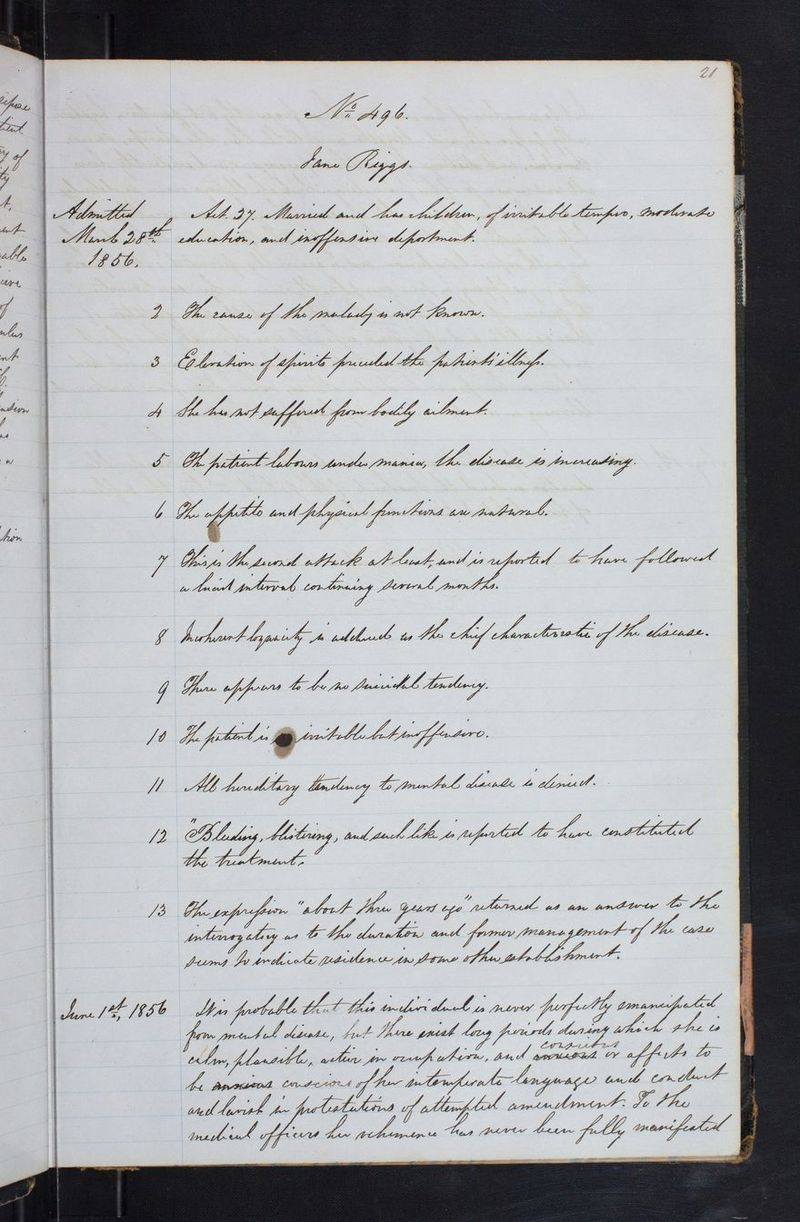 21
No. 496.
Jane Riggs.
Admitted
March 28th
1856.
Aet. 37. Married and has children, of irritable temper, moderate
education, and inoffensive deportment.
2 The cause of the malady is not known.
3 Elevation of spirits preceded the patients' illness.
4 She has not suffered from bodily ailment.
5 The patient labours under mania, the disease is increasing.
6 The appetite and physical functions are natural.
7 This is the second attack at least, and is reported to have followed
a lucid interval continuing several months.
8 Incoherent loquacity is adduced as the chief characteristic of the disease.
9 There appears to be no suicidal tendency.
10 The patient is irritable but inoffensive.
11 All hereditary tendency to mental disease is denied.
12 "Bleeding, blistering, and such like is reported to have constituted
the treatment.
13 The expression "about three years ago" returned as an answer to the
interrogatory as to the duration and former management of the case
seems to indicate residence in some other establishment.
June 1st, 1856
It is probable that this individual is never perfectly emancipated
from mental disease, but there exist long periods during which she is
calm, plausible, active in occupation, and conscious or affects to
be conscious of her intemperate language and conduct
and lavish in protestations of attempted amendment. To the
medical officers her vehemence has never been fully manifested